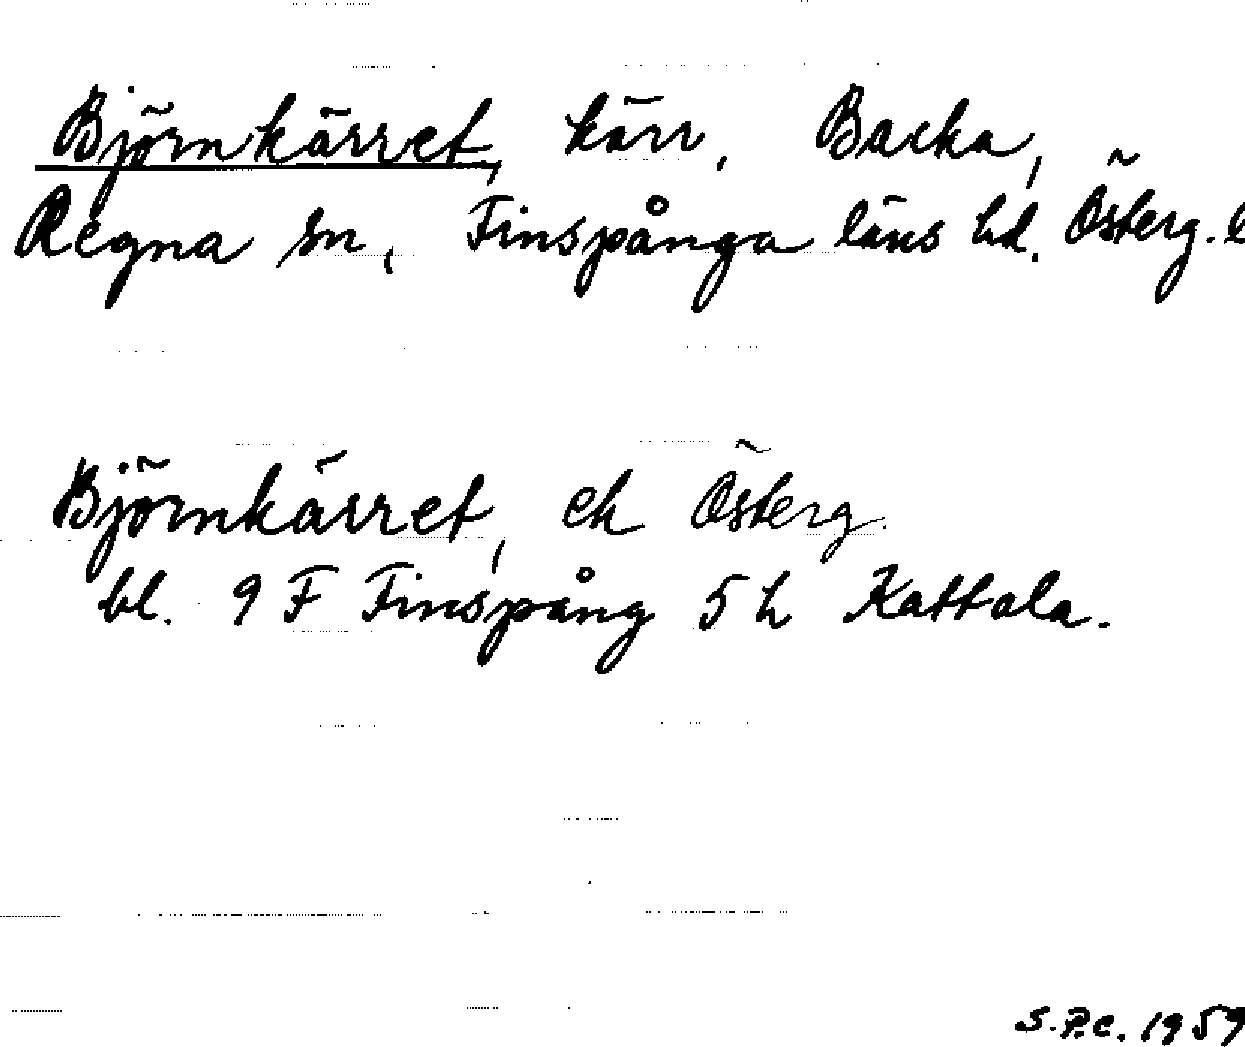 Björnkärret, kärr, Backa,
Regna sn, Finspånga läns hd. Österg. l
Björnkärret, ek Österg.
bl. 9 F Finspång 5 h Kattala.
S.P.C. 1959